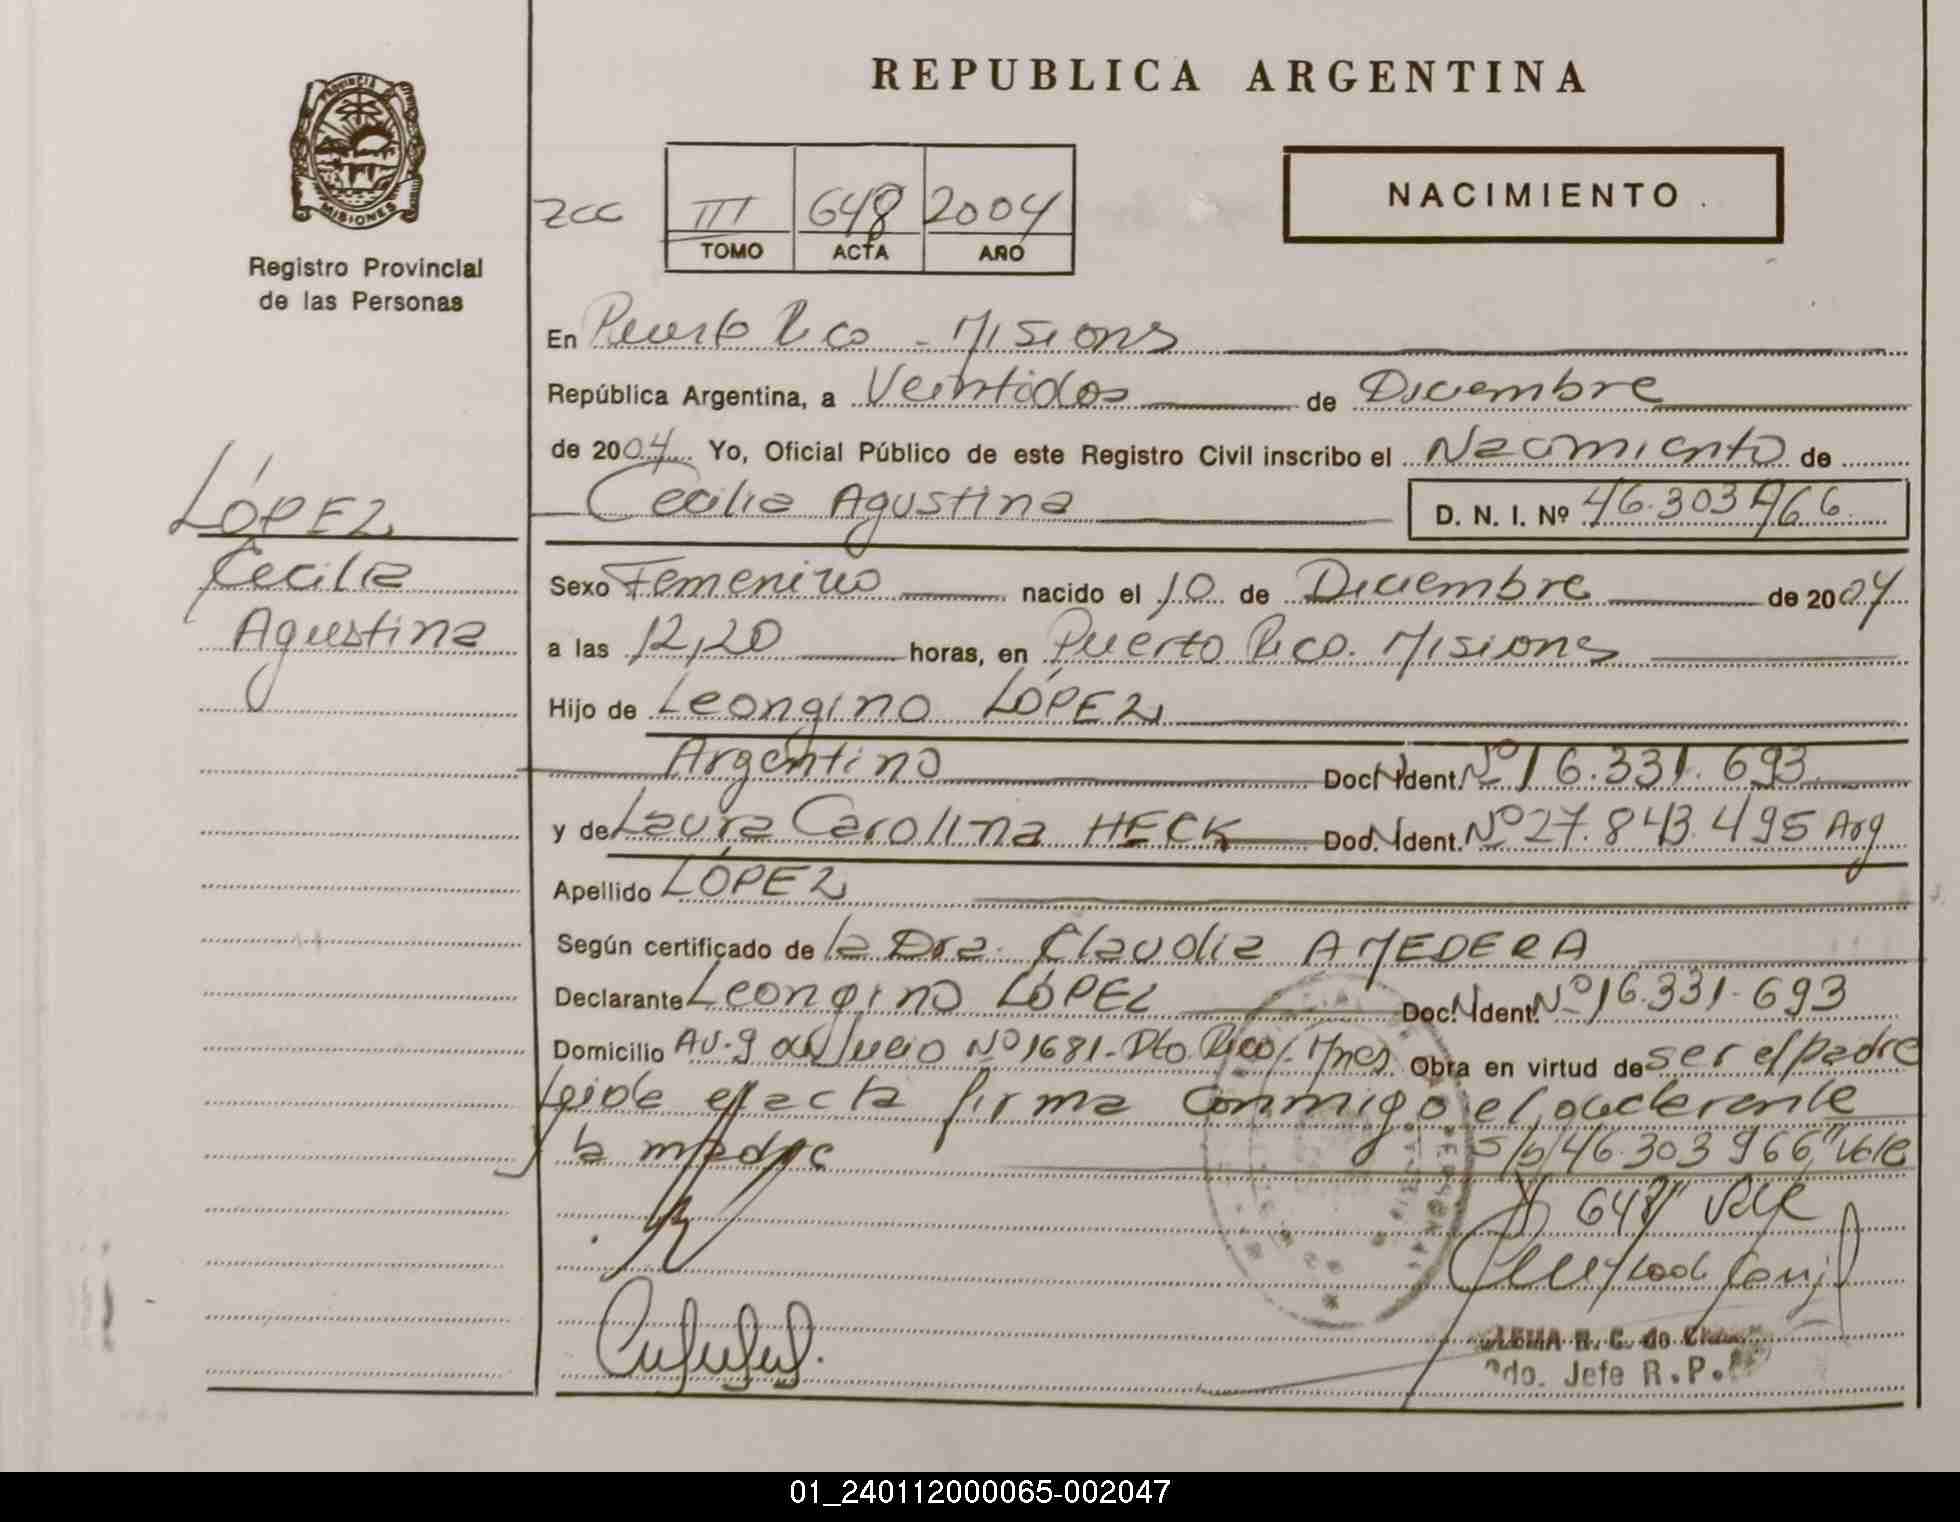 REPUBLICA ARGENTINA
PROVINCIA
MISIONES
Registro Provincial
de las Personas
NACIMIENTO
III 648 2004
TOMO ACTA AÑO
En Puerto Rico - Misiones
República Argentina, a Veintidos de Diciembre
de 2004 Yo, Oficial Público de este Registro Civil inscribo el Nacimiento de
Cecilia Agustina D. N. I. Nº 46.303.966
LÓPEZ
Cecilia
Agustina
Sexo Femenino nacido el 10 de Diciembre de 2004
a las 12,20 horas, en Puerto Rico. Misiones
Hijo de Leongino LÓPEZ
Argentino Doc. Ident. Nº 16.331.693
y de Laura Carolina HECK Doc. Ident. Nº 27.843.495 Arg
Apellido LÓPEZ
Según certificado de la Dra. Claudia AMEDERA
Declarante Leongino LÓPEZ Doc. Ident. Nº 16.331.693
Domicilio Av. 9 de Julio Nº 1681 - Pto. Rico, Mnes. Obra en virtud de ser el padre
Leida el acta firma conmigo el declarante
y la madre S/b/46.303.966" Vale
648" Vale
R. C. de
2do. Jefe R. P.
01_240112000065-002047